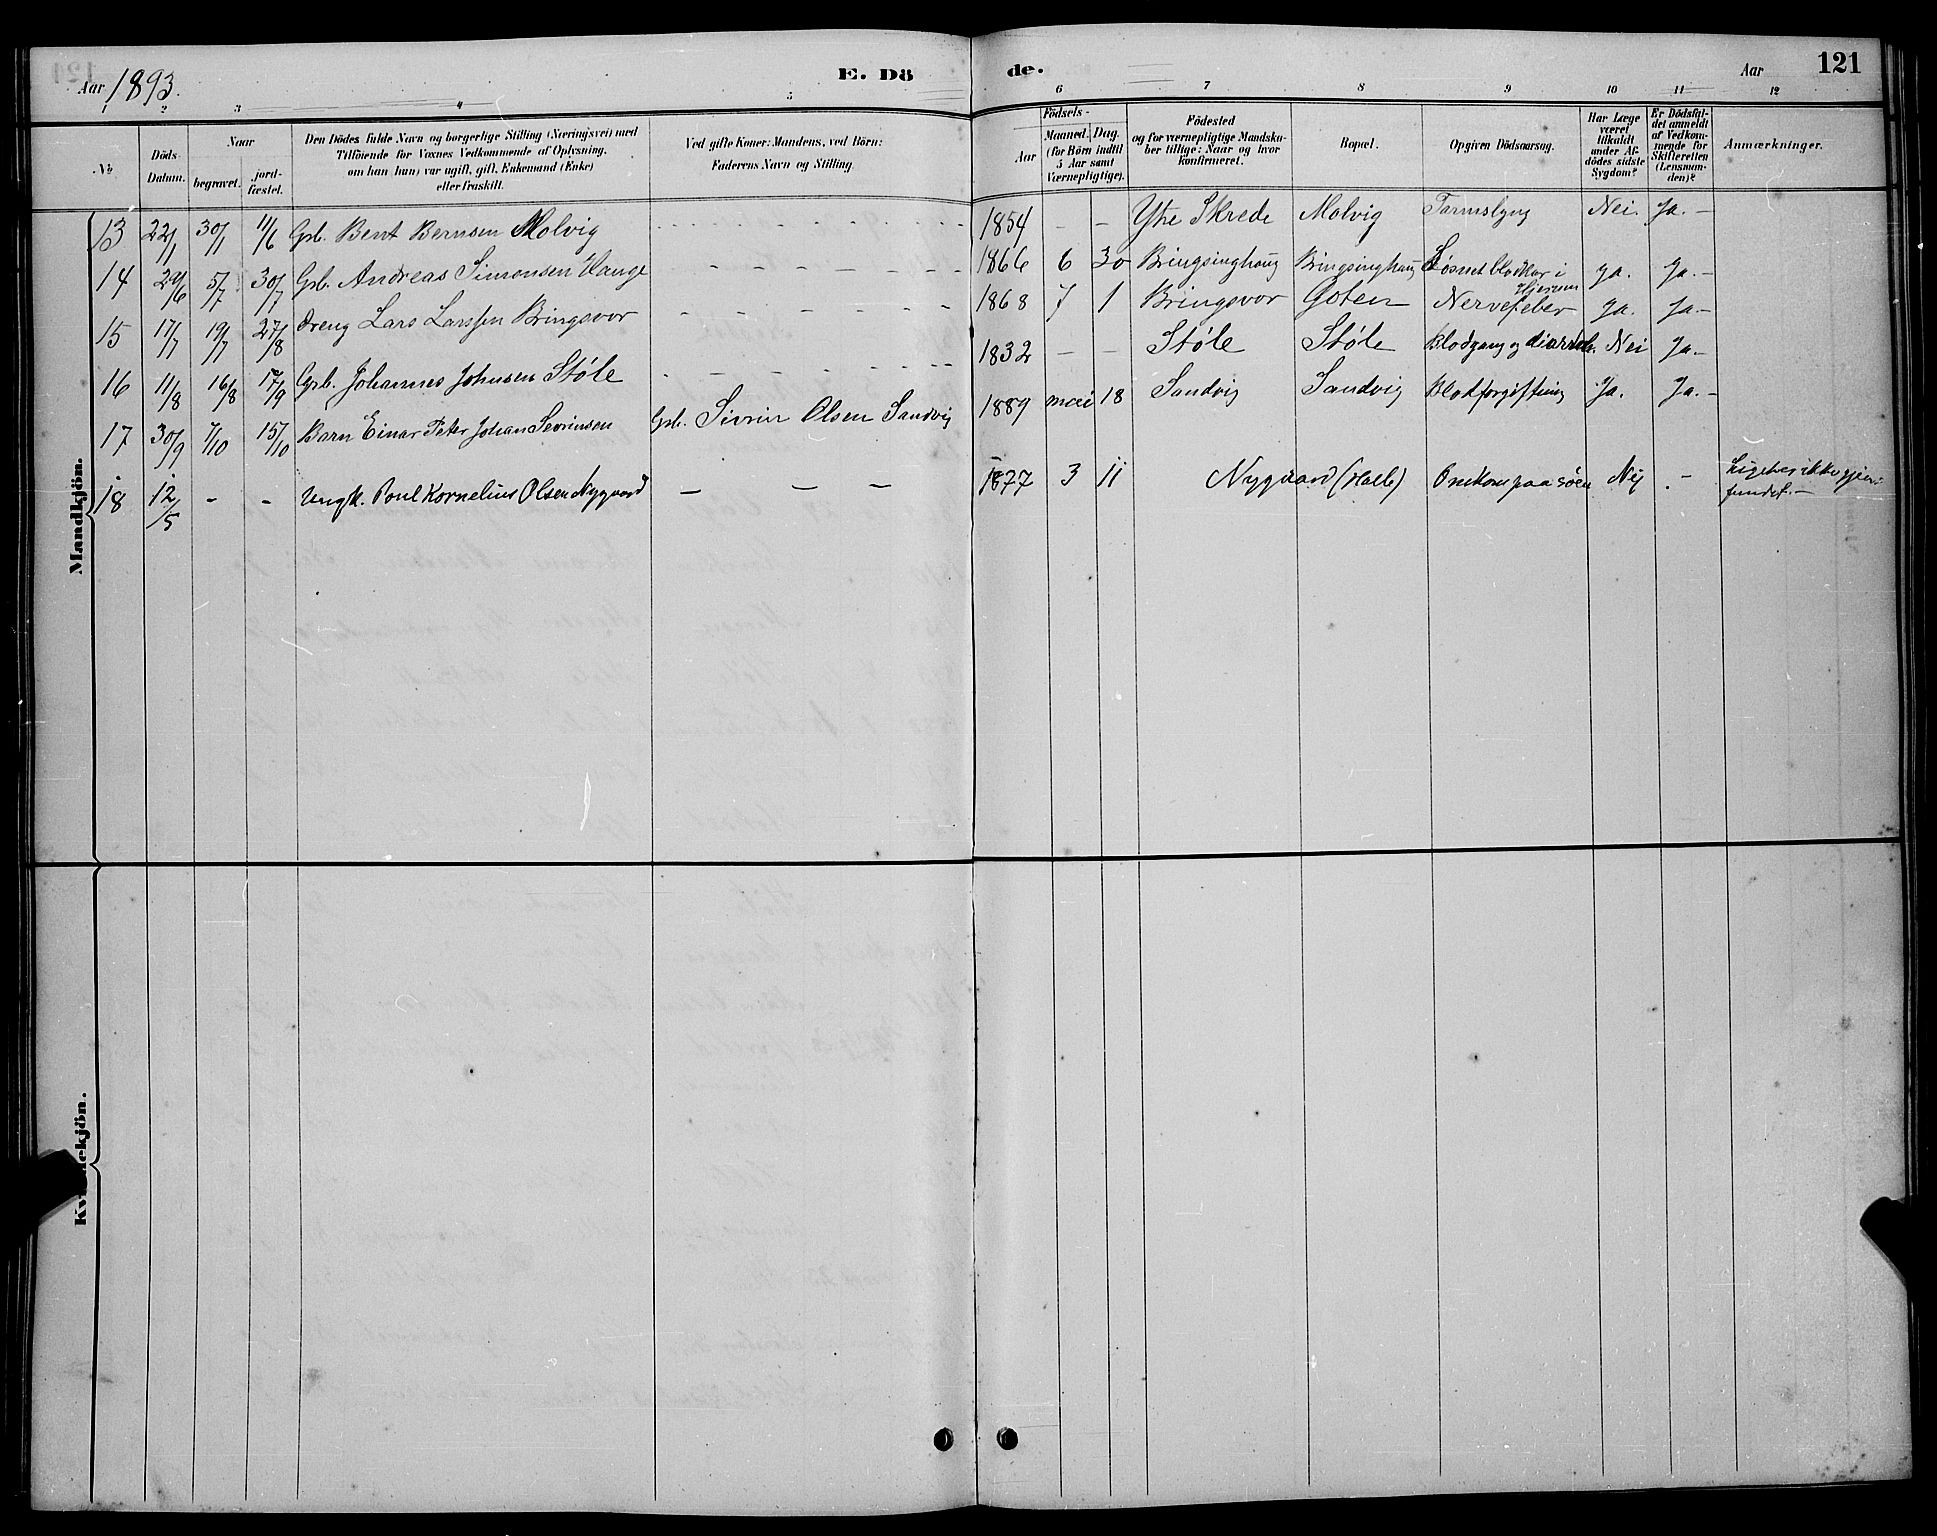 Aar 1893.
E. Dö de.
Aar
121
1 2 3 4 5 6 7 8 9 10 11 12
№
Döds Datum.
Naar
begravet.
jord-fæstet.
Den Dödes fulde Navn og borgerlige Stilling (Næringsvei) med
Tilföiende for Voxnes Vedkommende af Oplysning,
om han (hun) var ugift, gift, Enkemand (Enke)
eller fraskilt.
Ved gifte Koner: Mandens, ved Börn:
Faderens Navn og Stilling.
Födsels-
Aar
Maaned. Dag.
(for Börn indtil
5 Aar samt
Værnepligtige).
Födested
og for værnepligtige Mandska-
ber tillige: Naar og hvor
konfirmeret.
Bopæl.
Opgiven Dödsaarsag.
Har Læge
været
tilkaldt
under Af-
dödes sidste
Sygdom?
Er Dödsfal-
det anmeldt
af Vedkom-
mende for
Skifteretten
(Lensman-
den)?
Anmærkninger.
Mandkjön.
13 22/1 30/1 11/6 Grb. Bent Bernsen Molvig 1854 - - Ytre Skrede Molvig Tarmslyng Nei. Ja. -
14 29/6 5/7 30/7 Grb. Andreas Simonsen Hauge 1866 6 30 Bringsinghaug Bringsinghaug Løsnet blodkar i Hjernen Ja. Ja. -
15 17/7 19/7 27/8 Dreng Lars Larssen Bringsvor 1868 7 1 Bringsvor Goten Nervefeber Ja. Ja. -
16 11/8 16/8 17/9 Grb. Johannes Johnsen Støle 1832 - - Støle Støle Blodgang og diarrch. Nei Ja. -
17 30/9 7/10 15/10 Barn Einar Peter Johan Sevrinsen Grb. Sivrin Olsen Sandvig 1889 mai 18 Sandvig Sandvig Blodforgiftning Ja. Ja. -
18 12/5 - - Ungk. Poul Kornelius Olsen Nygaard - - - 1877 3 11 Nygaard (Halle) Omkom paa søen Nej . - Liget er ikke gjen-
fundet. -
Kvindekjön.